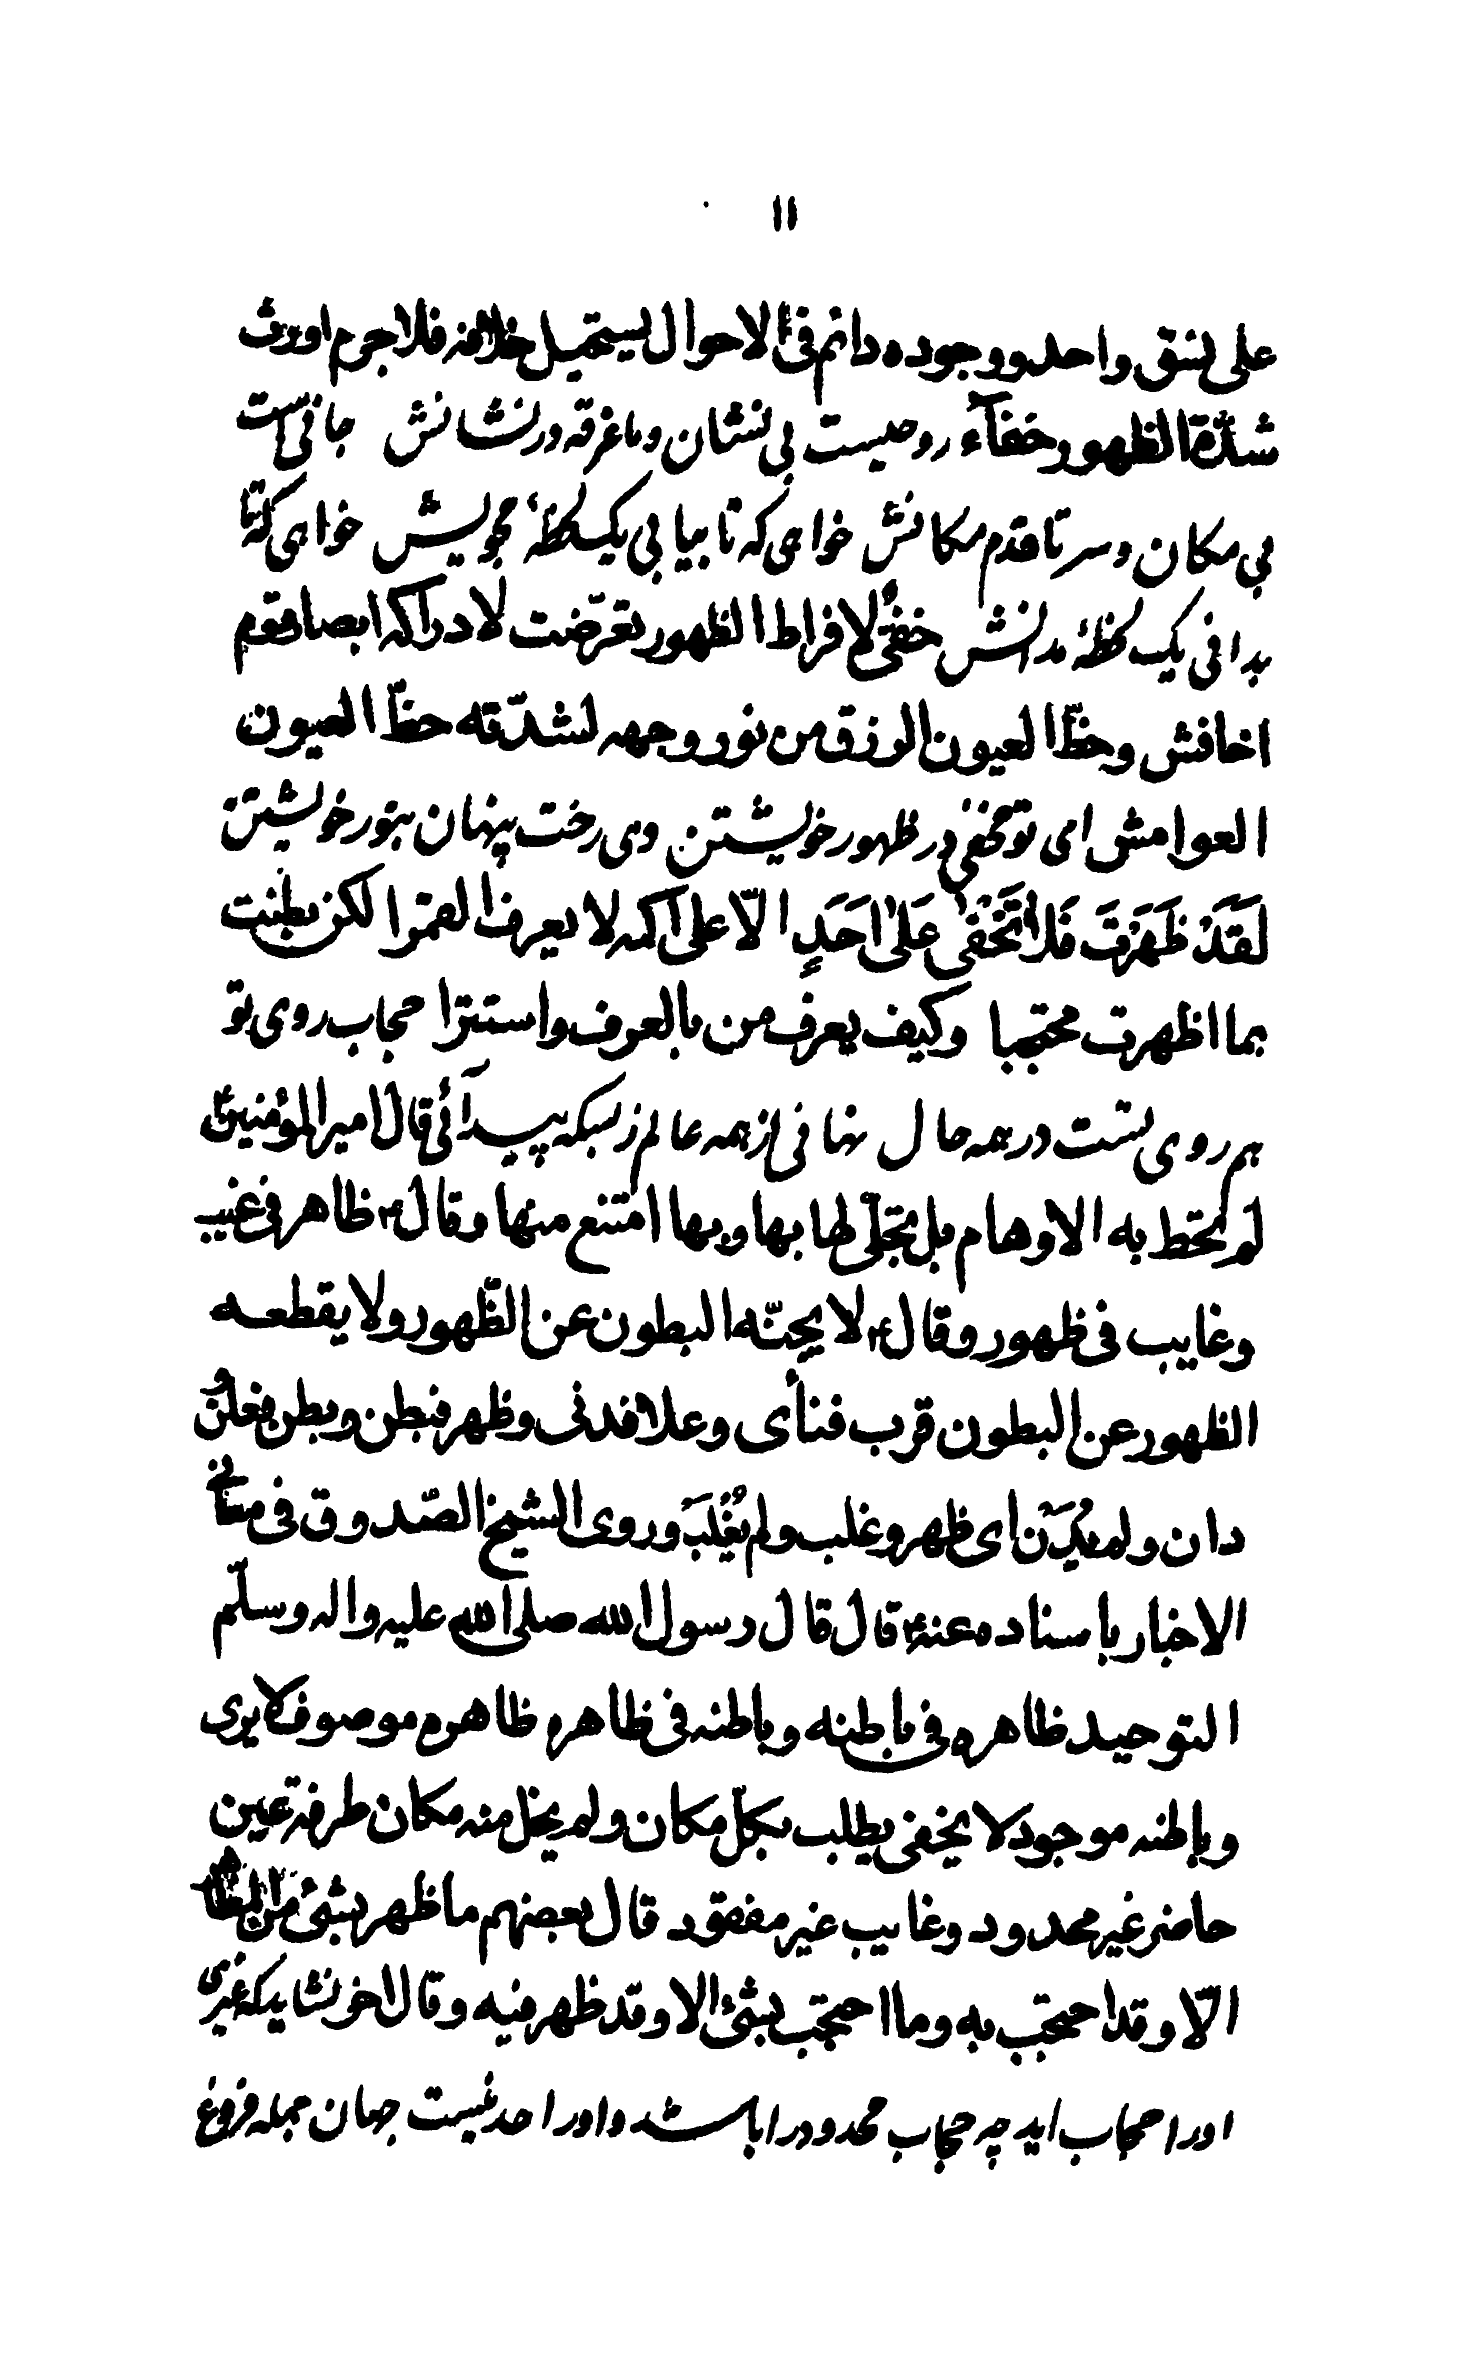 ١١
على نسق واحد ووجوده دائم فى الاحوال يستحيل خلافه فلا جرم اورث
شدّة الظهور خفآء روحيست بى نشان وما غرقه در نشانش جانيست
بى مكان و سر تا قدم مكانش خواهى كه تا بيابى يك لحظهٔ مجويش خواهى كه تا
بدانى يك لحظهٔ مدانش خفىّ لافراط الظهور تعرّضت لادراكه ابصار قوم
اخافش وحظّ العيون الزرق من نور وجهه لشدّته حظّ العيون
العوامش اى تو مخفى در ظهور خويشتن وى رخت پنهان بنور خويشتن
لَقَدْ ظَهَرْتَ فَلا تَخْفٰى عَلىٰ اَحَدٍ الّا على اكمه لا يعرف القمرا لكن بطنت
بما اظهرت محتجبا وكيف يعرف من بالعرف واستترا حجاب روى تو
هم روى تست در همه حال نهانى از همه عالم ز بسكه پيدآئى قال امير المؤمنين ع
لم تحط به الاوهام بل تجلّى لها بها وبها امتنع منها وقال ع ظاهر فى غيب
وغايب فى ظهور وقال ع لا يجنّه البطون عن الظّهور ولا يقطعه
الظهور عن البطون قرب فنأى وعلا فدنى وظهر فبطن وبطن فعلن و
دان ولم يُدَن اى ظهر وغلب ولم يُغْلَبْ وروى الشيخ الصّدوق فى معانى
الاخبار باسناده عنه ع قال قال رسول الله صلى الله عليه واله وسلّم
التوحيد ظاهره فى باطنه وباطنه فى ظاهره ظاهره موصوف لا يرى
وباطنه موجود لا يخفى يطلب بكلّ مكان ولم يخل منه مكان طرفة عين
حاضر غير محدود وغايب غير مفقود قال بعضهم ما ظهر بشئ من المظاهر
الّا وقد احتجب به وما احتجب بشئ الا وقد ظهر فيه وقال اخر نشايد كه غيرى
اورا حجاب ايد چه حجاب محدود را باشد و اورا حد نيست جهان جمله فروغ